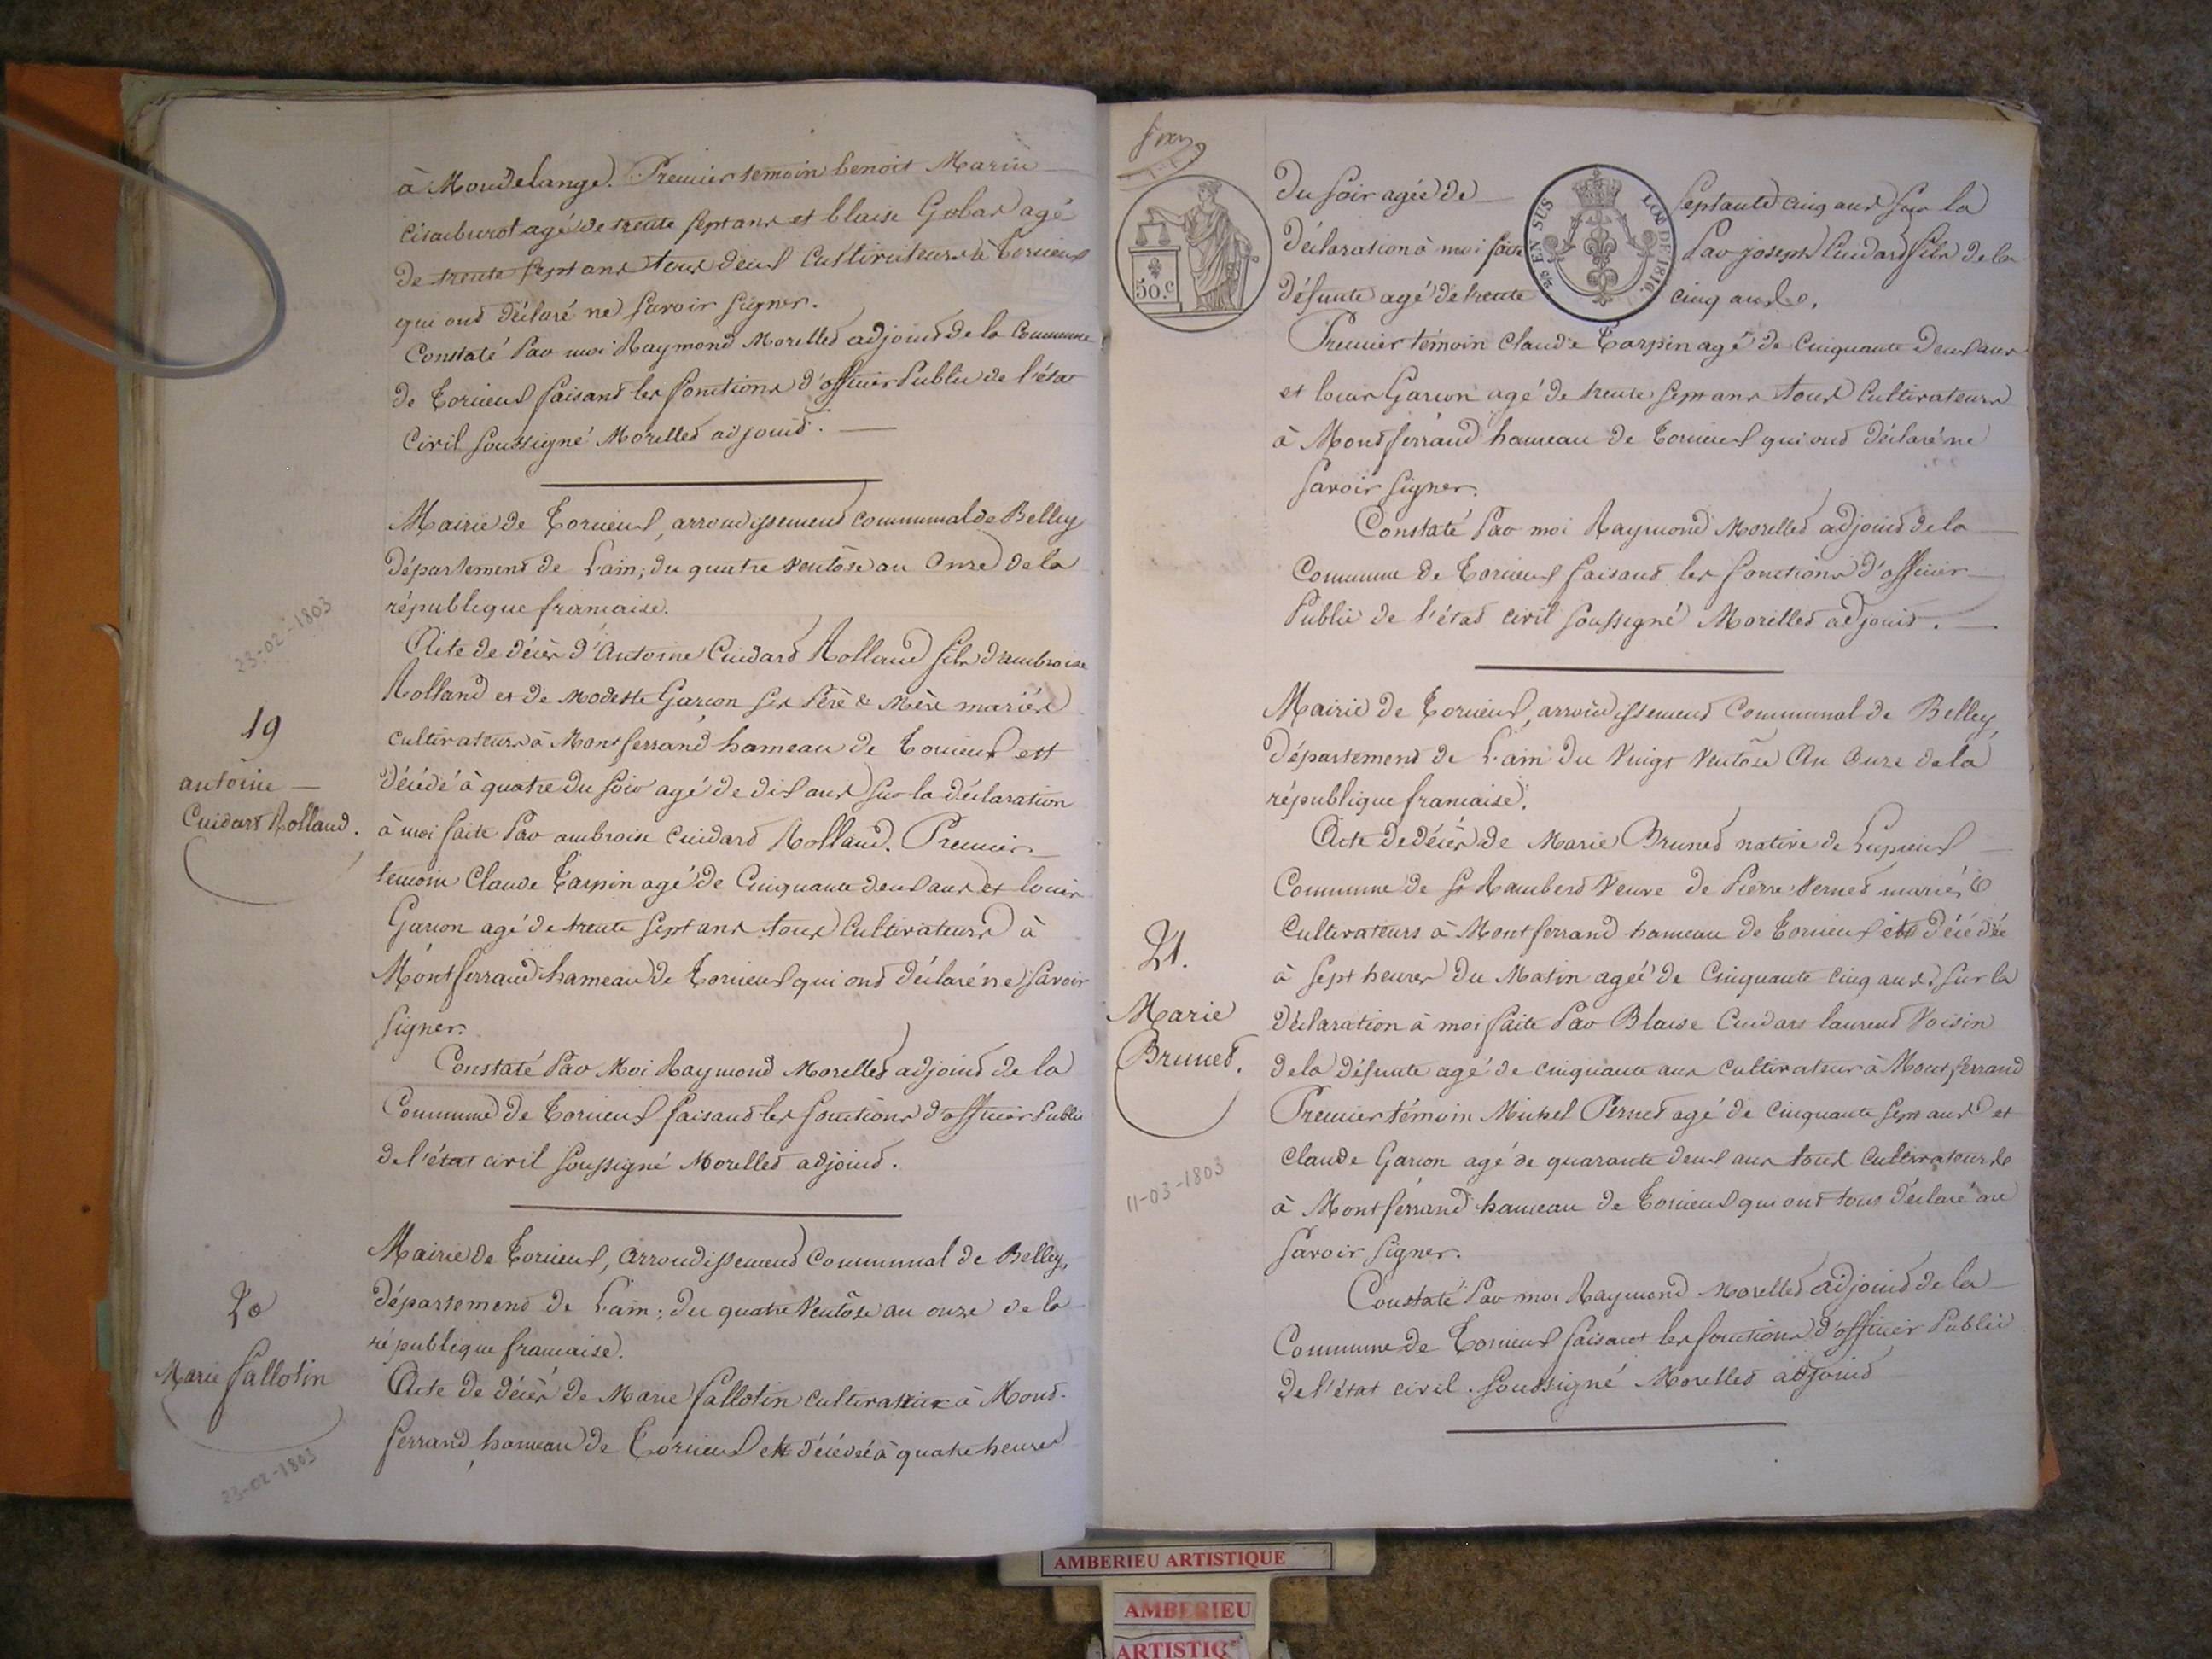 à Mondelange. Premier temoin benoit Marin
agé de trente sept ans et blaise Gobas agé
de trente sept ans tous deux Cultivateurs à Torcieux
qui ont déclaré ne Savoir Signer.
Constaté Par moi Raymond Morellet adjoint de la Commune
de Torcieux faisant les fonctions d'officier Public de l'état
Civil Soussigné Morellet adjoint.
Mairie de Torcieux, arrondissement communal de Belley
département de L'ain; du quatre ventôse an Onze de la
république francaise.
23-02-1803
19
antoine
Cuidart Rolland.
Acte de décès d'Antoine Cuidard Rolland fils d'ambroise
Rolland et de Modeste Garcon Ses Père & Mère mariés
cultivateurs à Montferrand hameau de Torcieux est
décédé à quatre du soir agé de dix ans sur la déclaration
à moi faite Par ambroise cuidard Rolland. Premier
temoin Claude Tarpin agé de Cinquante deux ans et louis
Garcon agé de trente Sept ans tous Cultivateurs à
Montferrand hameau de Torcieux qui ont déclaré ne Savoir
Signer.
Constaté Par Moi Raymond Morellet adjoint de la
Commune de Torcieux faisant les fonctions d'officier Public
de l'état civil Soussigné Morellet adjoint.
Mairie de Torcieux, arrondissement Communal de Belley,
département de L'ain; du quatre Ventôse an onze de la
république francaise.
20
Marie fallotin
23-02-1803
Acte de décès de Marie fallotin cultivatrice à Mont-
ferrand hameau de Torcieux est décédée à quatre heures
50.c
EN SUS LOI DE 1816.
du soir agée de septante cinq ans Sur la
déclaration à moi faite Par joseph Cuidard fils de la
défunte agé de trente cinq ans.
Premier témoin Claude Tarpin agé de Cinquante deux ans
et louis Garcon agé de trente Sept ans tous Cultivateurs
à Montferrand hameau de Torcieux qui ont déclaré ne
Savoir Signer.
Constaté Par moi Raymond Morellet adjoint de la
Commune de Torcieux faisant les fonctions d'officier
Public de l'état civil Soussigné Morellet adjoint.
Mairie de Torcieux, arrondissement Communal de Belley,
département de L'ain du Vingt Ventôse An onze de la
république francaise.
21.
Marie
Brunet.
11-03-1803
Acte de décès de Marie Brunet native de Lupieux
Commune de St Rambert Veuve de Pierre Vernet mariés
Cultivateurs à Montferrand hameau de Torcieux est décédée
à Sept heures du Matin agée de Cinquante cinq ans, sur la
déclaration à moi faite Par Blaise Cuidart laurent Voisin
de la défunte agé de cinquante ans cultivateur à Montferrand
Premier témoin Michel Pernet agé de cinquante sept ans et
Claude Garcon agé de quarante deux ans tous Cultivateurs
à Montferrand hameau de Torcieux qui ont tous déclaré ne
Savoir Signer.
Constaté Par moi Raymond Morellet adjoint de la
Commune de Torcieux faisant les fonctions d'officier Public
de l'état civil. Soussigné Morellet adjoint
AMBERIEU ARTISTIQUE
AMBERIEU
ARTISTIQ